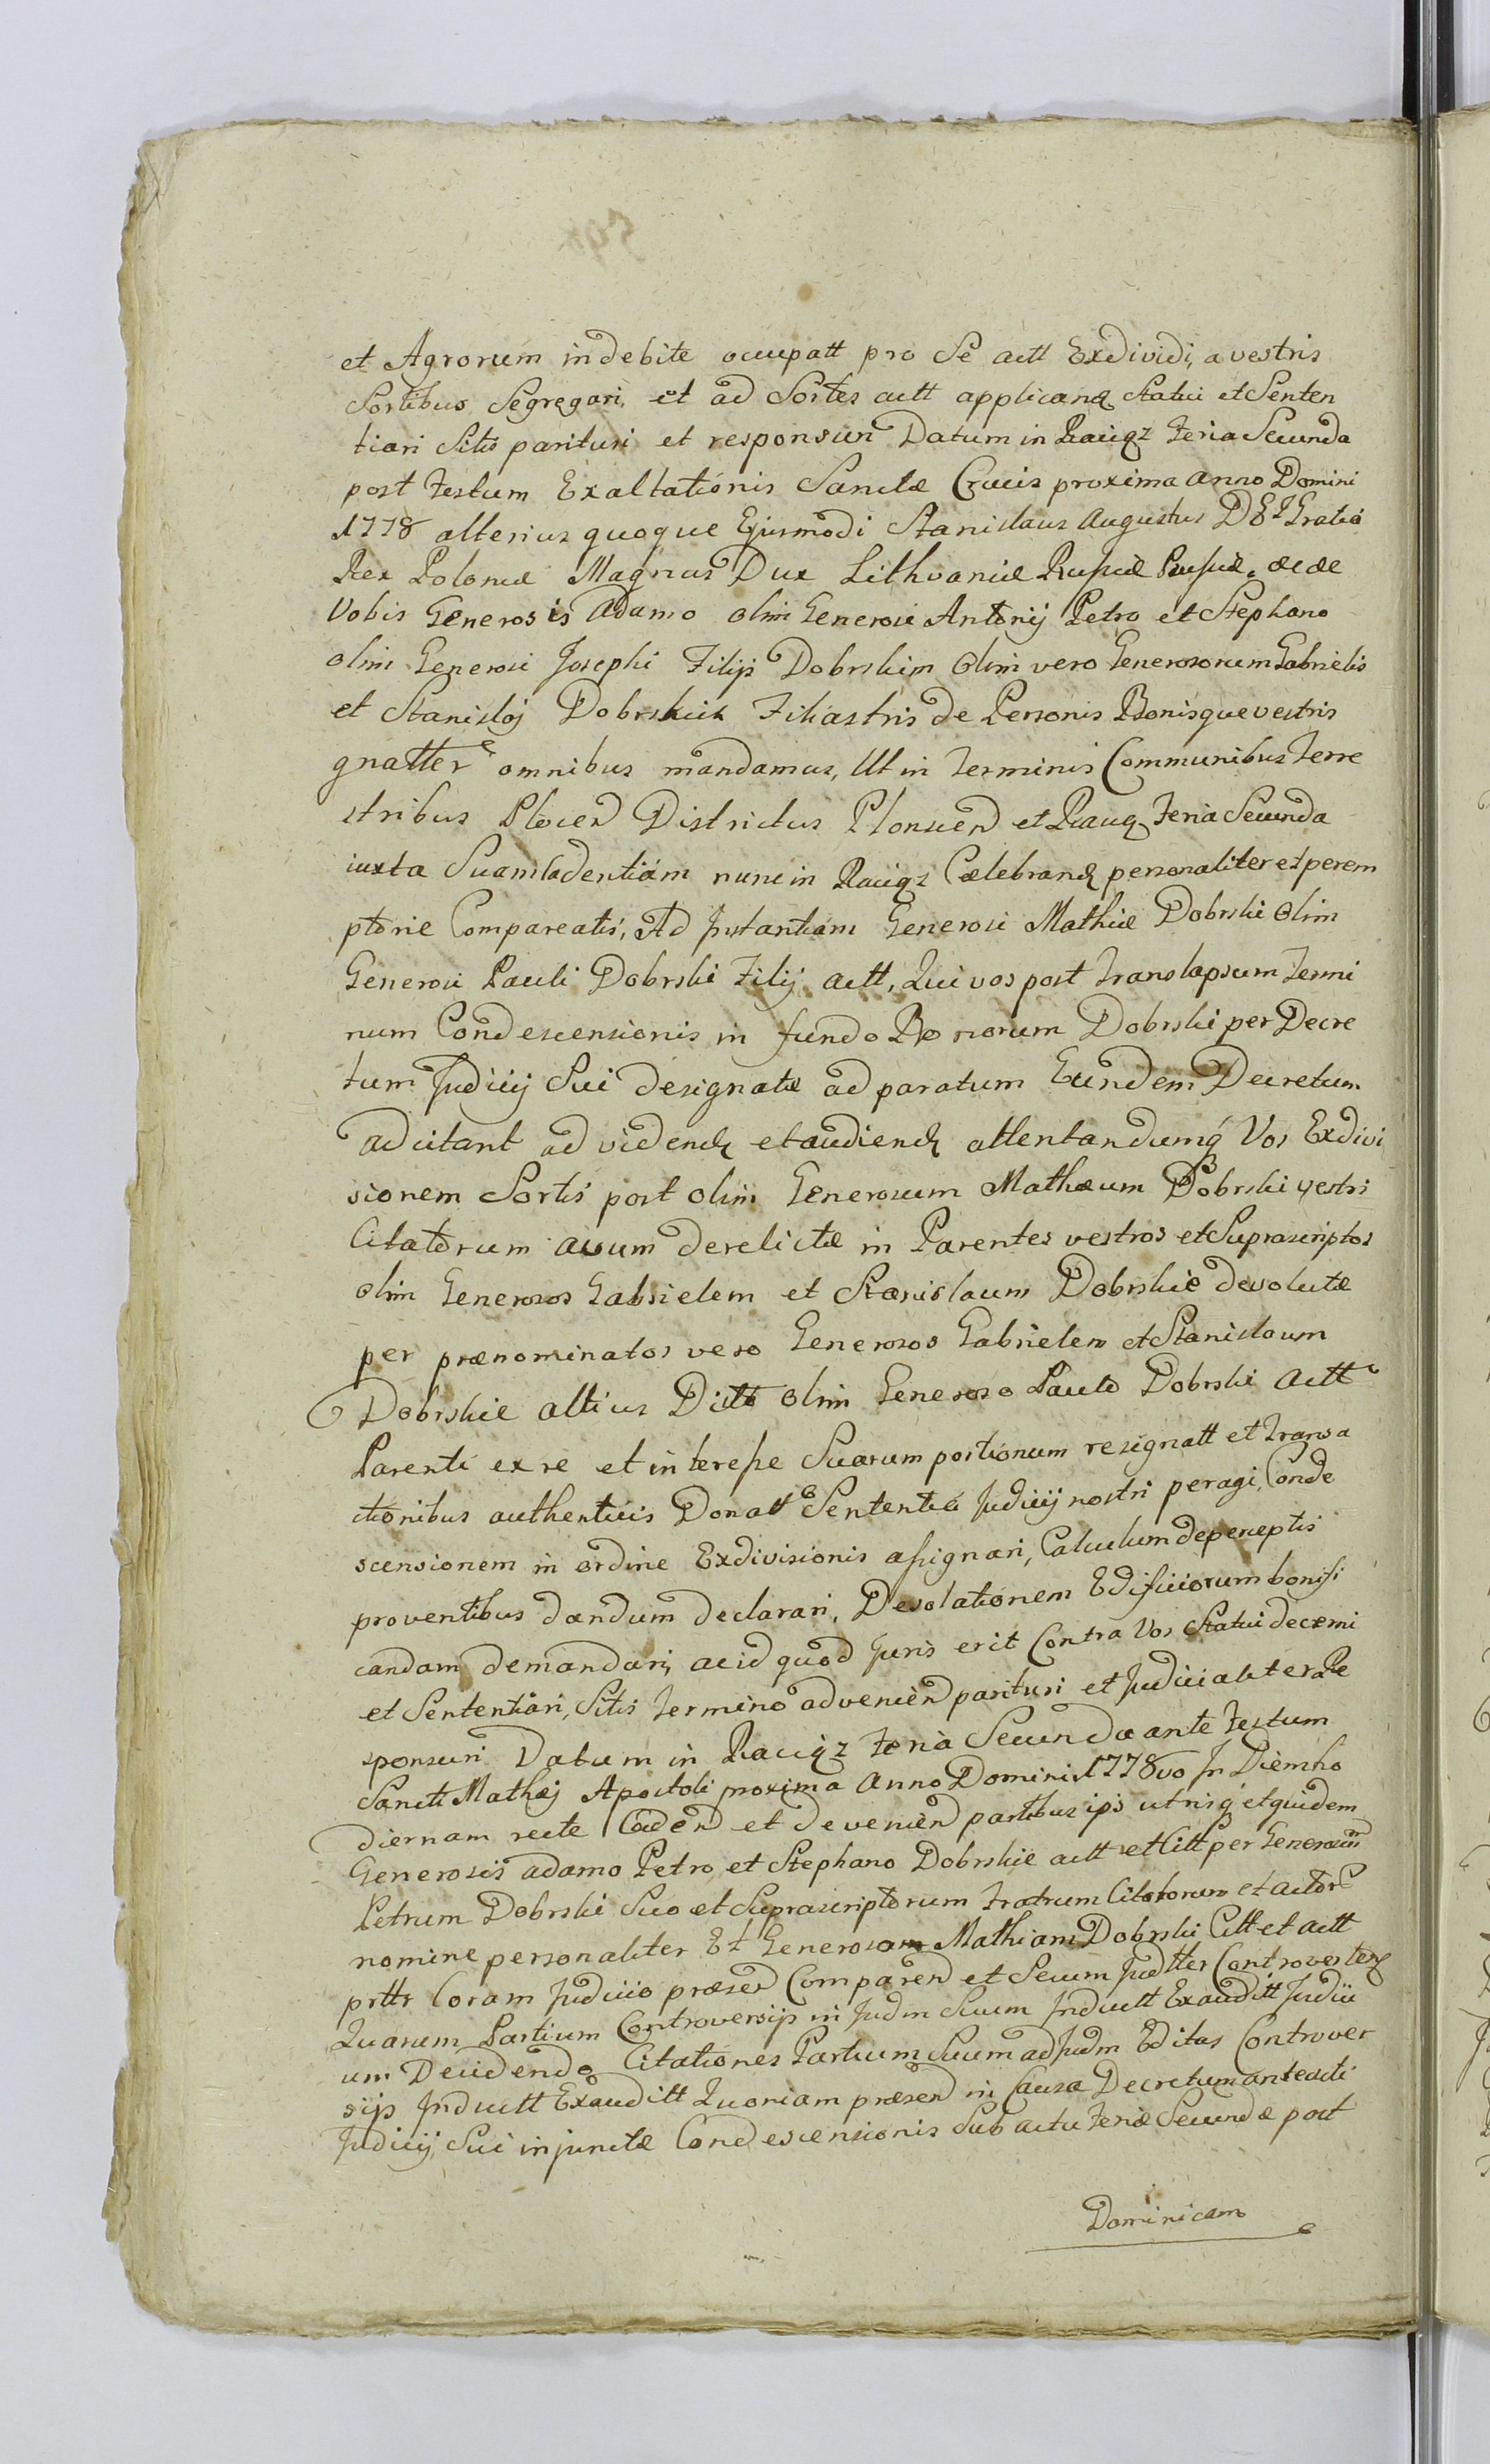 et Agrorum indebite occupatt pro Se actt Exdividi, a vestris
Sortibus Segregari, et ad Sortes actt applicand Statui et Senten
tiari Sitis parituri et responsuri Datum in Raciąz Feria Secunda
post Festum Exaltationis Sanctæ Crucis proxima Anno Domini
1778 alterius quoque Ejusmodi Stanislaus Augustus DEI Gratia
Rex Poloniæ Magnus Dux Lithvaniæ Russiæ Prussiæ &c &c
Vobis Generosis Adamo olim Generosi Antonij Petro et Stephano
olim Generosi Josephi Filijs Dobrskim Olim vero Generosorum Gabrielis
et Stanislaj Dobrskich Filiastris de Personis Bonisque vestris
gnatter omnibus mandamus, Ut in Terminis Communibus Terre
stribus Plocen Districtus Plonscen et Raciąz Feria Secunda
iuxta Suam Cadentiam nunc in Raciąz Cælebrand personaliter et perem
ptorie Compareatis, Ad Instantiam Generosi Mathiæ Dobrski Olim
Generosi Pauli Dobrski Filij actt, Qui vos post Translapsum Termi
num Condescensionis in fundo Bonorum Dobrski per Decre
tum Judicij Sui designatæ ad paratum Eundem Decretum
adcitant ad vidend et audiend attentandumq Vos Exdivi
sionem Sortis post olim Generosum Mathæum Dobrski vestri
Citatorum avum derelictæ in Parentes vestros et Suprascriptos
olim Generosos Gabrielem et Stanislaum Dobrskie devolutæ
per prænominatos vero Generosos Gabrielem et Stanislaum
Dobrskie altius Ditt olim Generoso Paulo Dobrski actt
Parenti ex re et interesse Suarum portionum resignatt et Transa
ctionibus authenticis Donatt Sententia Judicij nostri peragi, Conde
scensionem in ordine Exdivisionis assignari, Calculum de perceptis
proventibus dandum declarari, Desolationem Edificiorum bonifi
candam demandari, ac id quod Juris erit Contra Vos Statui decerni
et Sententiari, Sitis Termino advenien parituri et Judicialiter Re
sponsuri Datum in Raciąz Feria Secunda ante Festum
Sancti Mathæj Apostoli proxima Anno Domini 1778vo In Diem ho
diernam recte Caden et devenien partibus ipis utrisq et quidem
Generosis Adamo Petro et Stephano Dobrskie actt et Citt per Generosum
Petrum Dobrski Suo et Suprascriptorum Fratrum Citatorum et actor
nomine personaliter Et Generosum Mathiam Dobrski Citt et actt
prttr Coram Judicio præsen Comparen et Secum Judtter Controverten
Quarum Partium Controversijs in Judm Suum Inductt Exauditt Judici
um Decidendo Citationes Partium Suum ad Judm Editas Controver
sijs Inductt Exauditt Quoniam præsen in Causa Decretum anteacti
Judicij Sui injunctæ Condescensionis Sub actu Feriæ Secundæ post
Dominicam